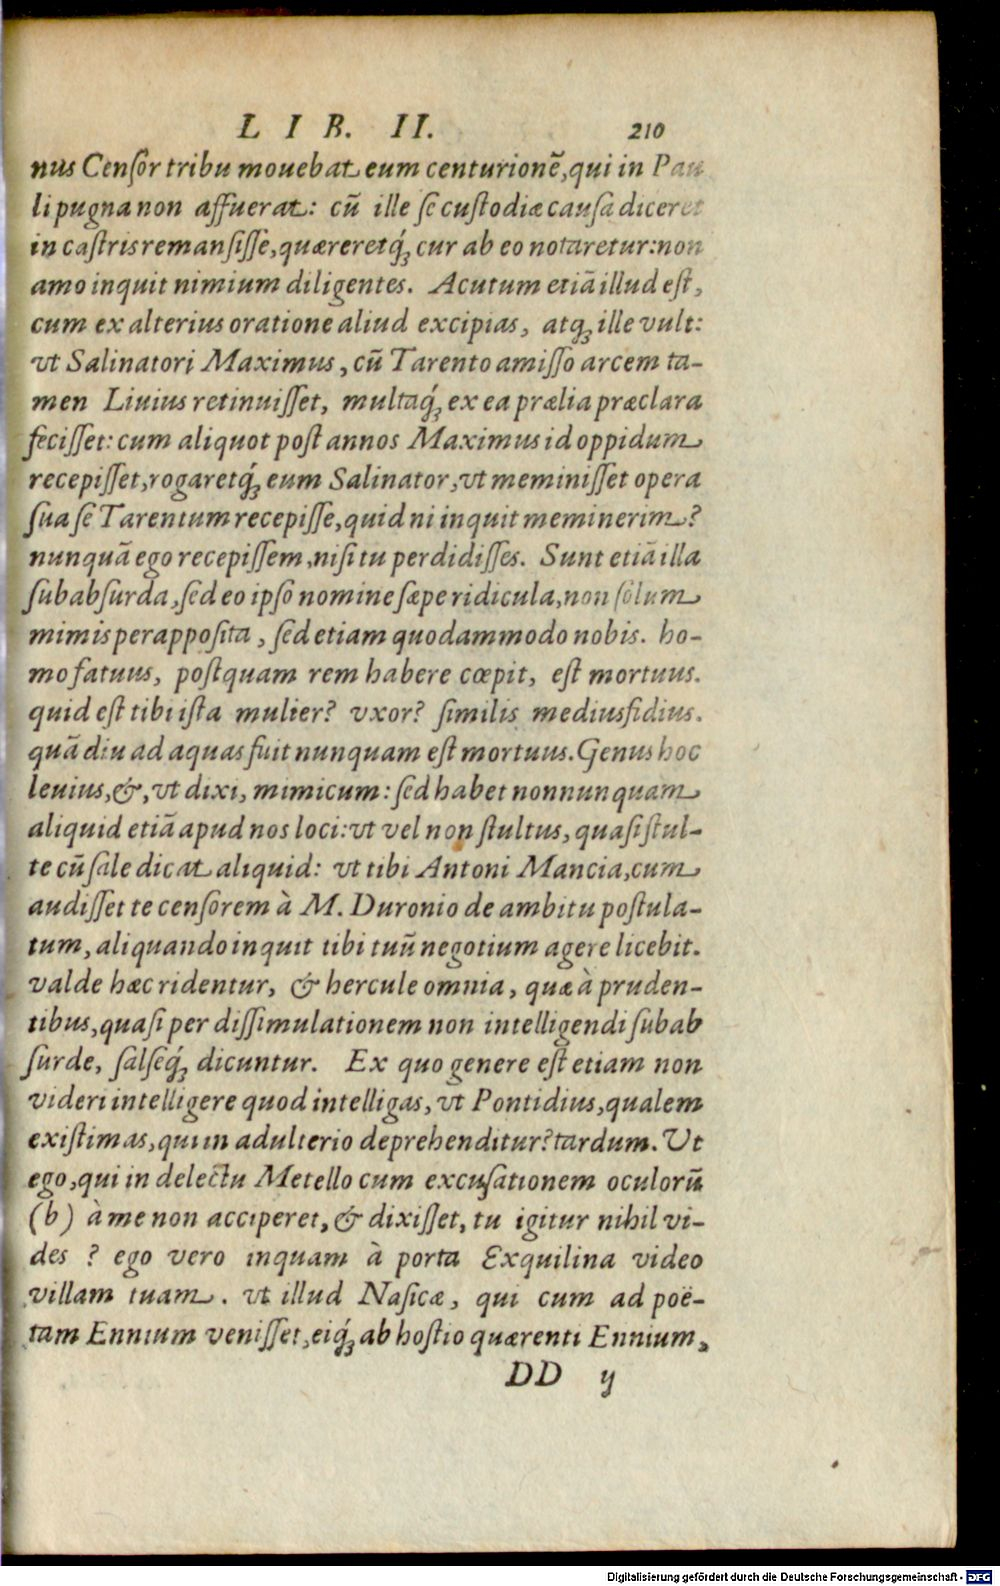 LIB. II. 210
nus Censor tribu mouebat eum centurionē, qui in Pau
li pugna non affuerat: cū ille se custodiæ causa diceret
in castris remansisse, quæreretq́; cur ab eo notaretur: non
amo inquit nimium diligentes. Acutum etiā illud est,
cum ex alterius oratione aliud excipias, atq; ille vult:
vt Salinatori Maximus, cū Tarento amisso arcem ta-
men Liuius retinuisset, multaq́; ex ea prælia præclara
fecisset: cum aliquot post annos Maximus id oppidum
recepisset, rogaretq́; eum Salinator, vt meminisset opera
sua se Tarentum recepisse, quid ni inquit meminerim?
nunquā ego recepissem, nisi tu perdidisses. Sunt etiā illa
subabsurda, sed eo ipso nomine sæpe ridicula, non solum
mimis perapposita, sed etiam quodammodo nobis. ho-
mo fatuus, postquam rem habere cœpit, est mortuus.
quid est tibi ista mulier? vxor? similis mediusfidius.
quā diu ad aquas fuit nunquam est mortuus. Genus hoc
leuius, &, vt dixi, mimicum: sed habet nonnunquam
aliquid etiā apud nos loci: vt vel non stultus, quasi stul-
te cū sale dicat aliquid: vt tibi Antoni Mancia, cum
audisset te censorem à M. Duronio de ambitu postula-
tum, aliquando inquit tibi tuū negotium agere licebit.
valde hæc ridentur, & hercule omnia, quæ à pruden-
tibus, quasi per dissimulationem non intelligendi subab
surde, salseq́; dicuntur. Ex quo genere est etiam non
videri intelligere quod intelligas, vt Pontidius, qualem
existimas, qui in adulterio deprehenditur? tardum. Ut
ego, qui in delectu Metello cum excusationem oculorū
(b) à me non acciperet, & dixisset, tu igitur nihil vi-
des ? ego vero inquam à porta Exquilina video
villam tuam. vt illud Nasicæ, qui cum ad poë-
tam Ennium venisset, eiq́; ab hostio quærenti Ennium,
DD ij
Digitalisierung gefördert durch die Deutsche Forschungsgemeinschaft - DFG